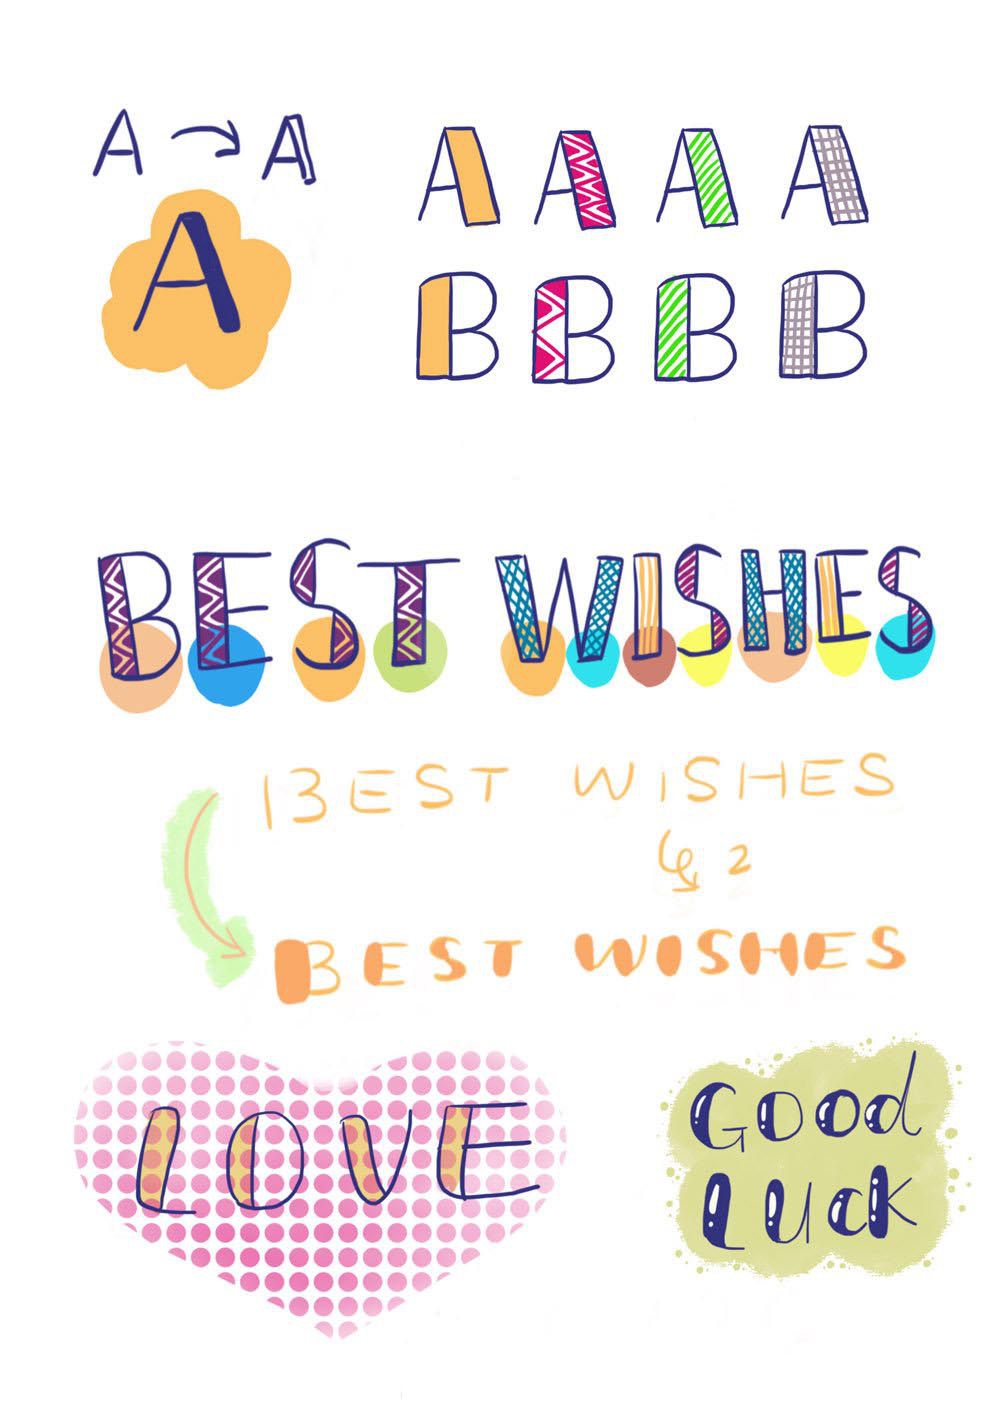 A A
A
A A A A
B B B B
BEST WISHES
BEST WISHES
2
BEST WISHES
LOVE
GOOD
LUCK